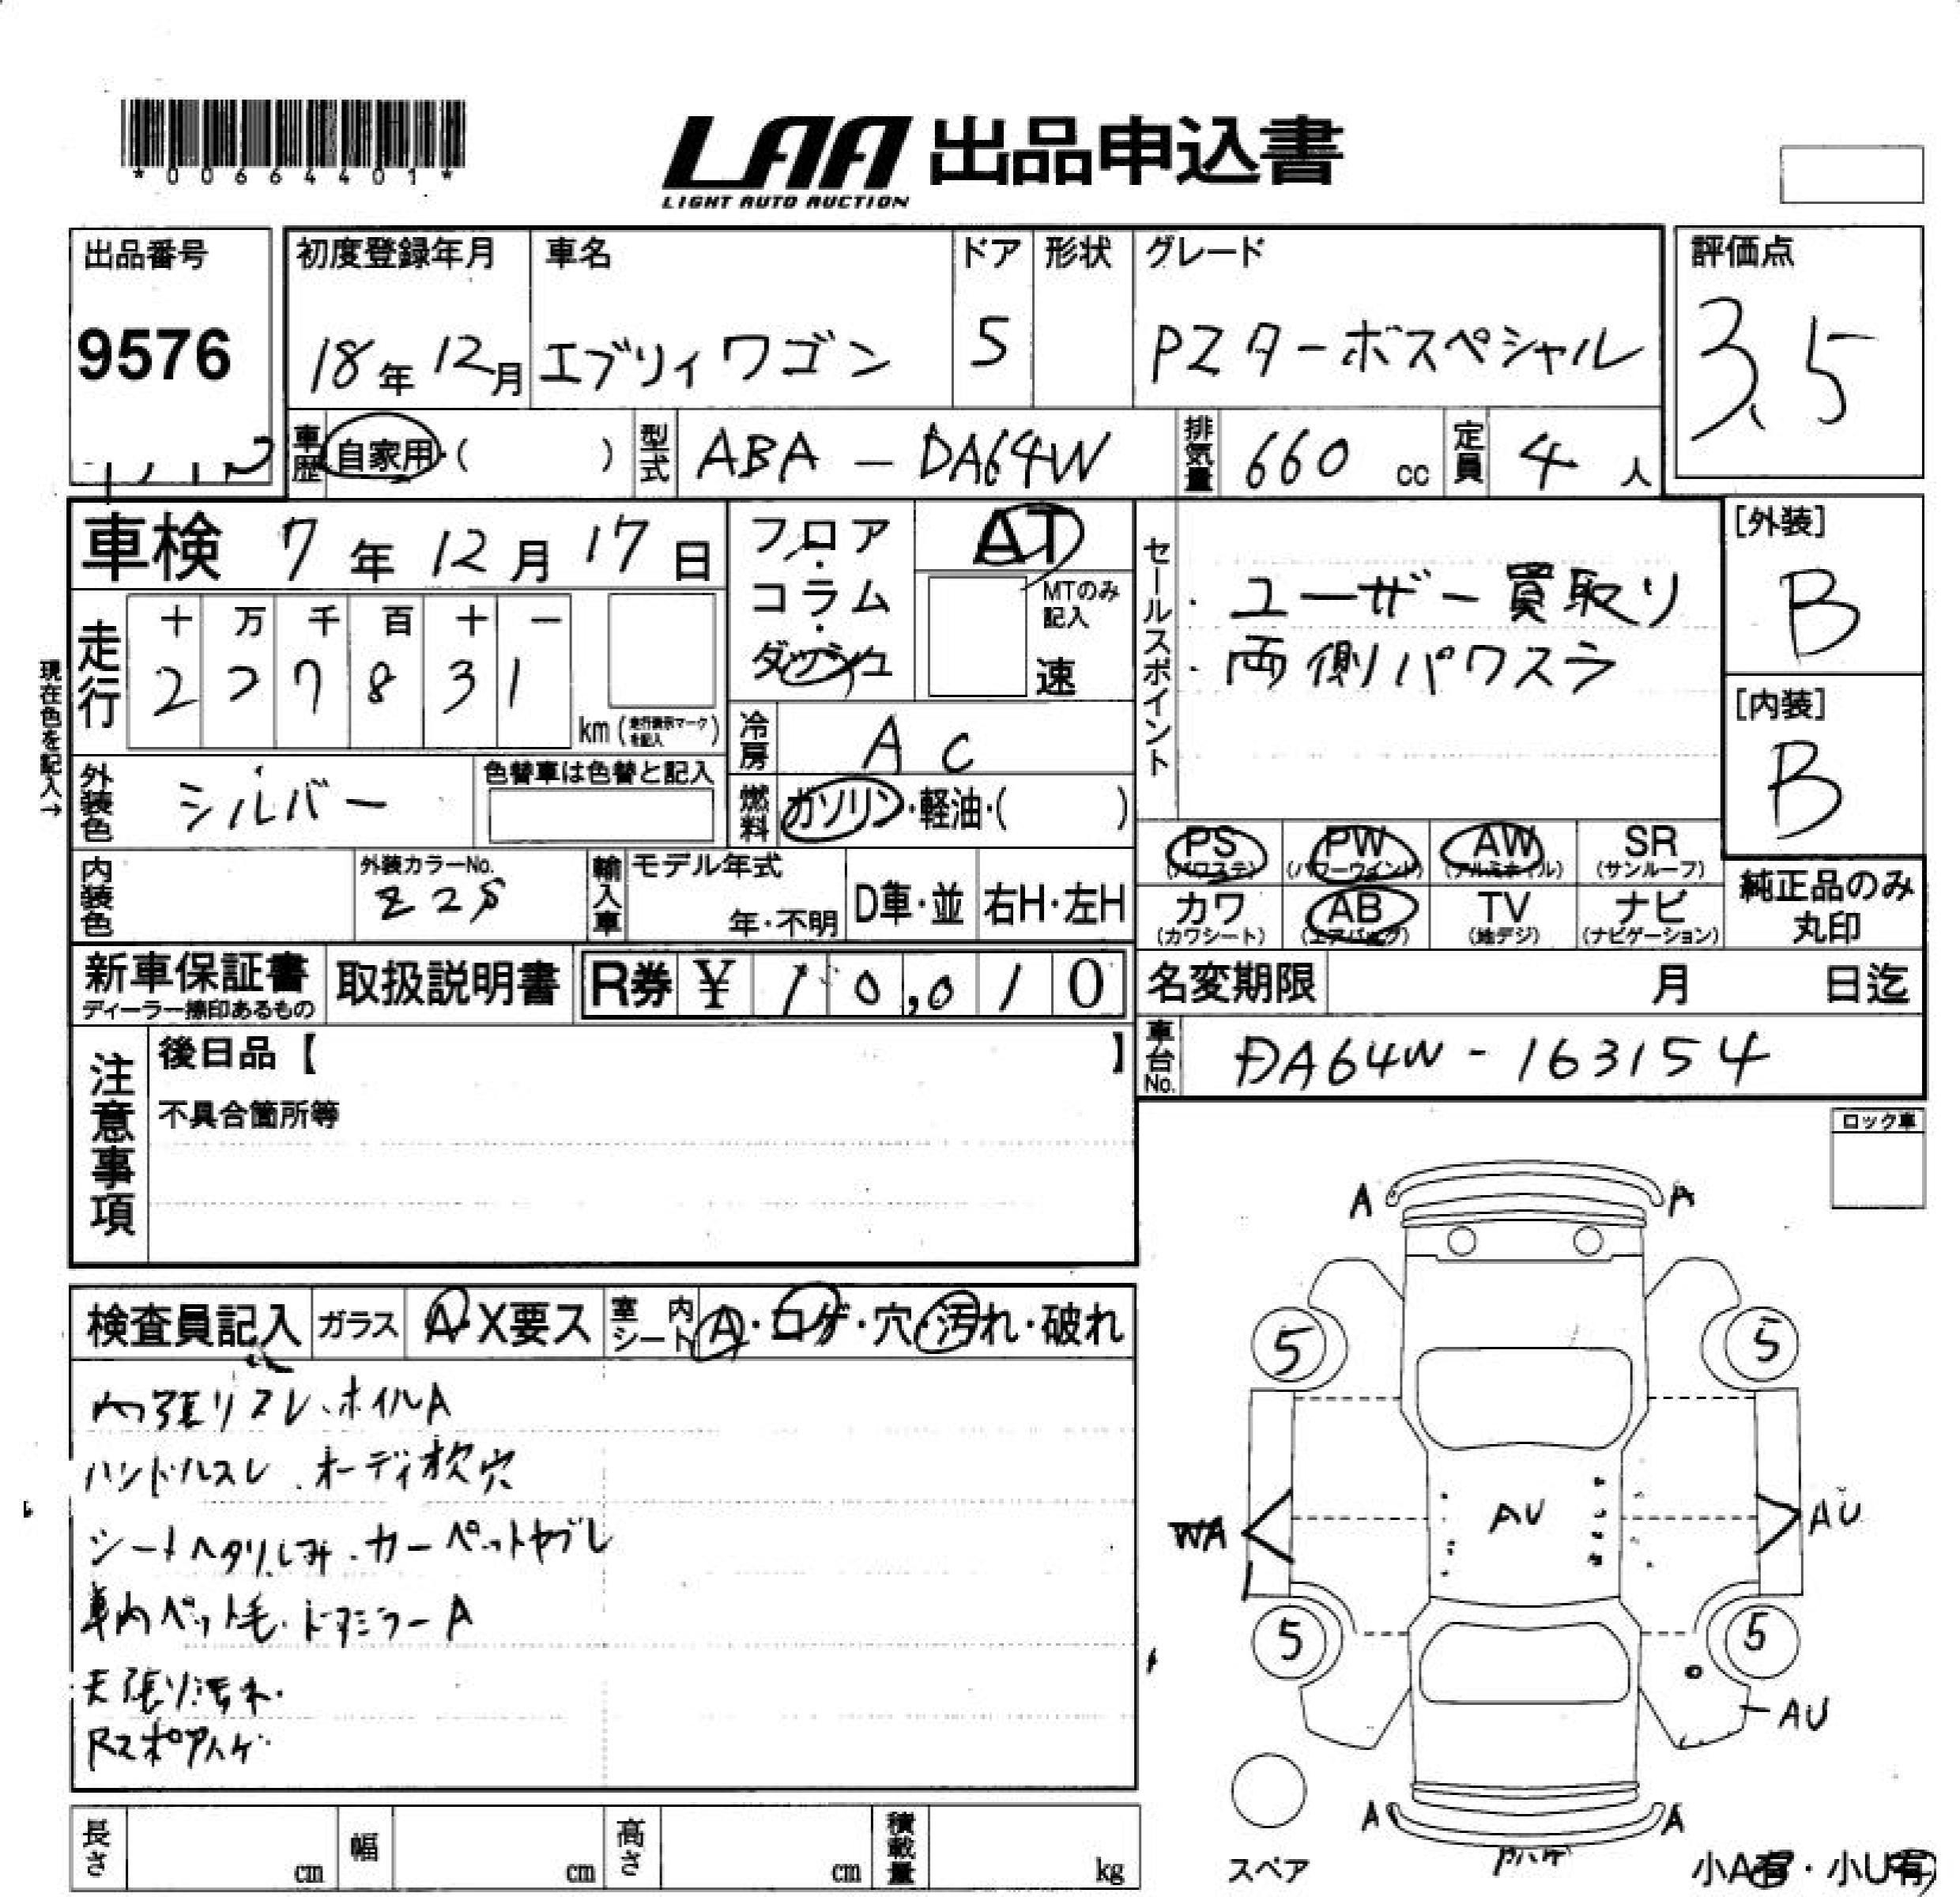 *00664401*
LAA 出品申込書
LIGHT AUTO AUCTION
出品番号 初度登録年月 車名 ドア 形状 グレード 評価点
9576 18年12月 エブリィワゴン 5 PZターボスペシャル 3.5
車歴 自家用・( ) 型式 ABA-DA64W 排気量 660 cc 定員 4人
車検 7年12月17日 フロア・コラム・ダッシュ AT
MTのみ記入 速
セールスポイント
・ユーザー買取り
・両側パワスラ
[外装] B
[内装] B
現在色を記入→
走行 十 万 千 百 十 一
2 2 7 8 3 1
km (走行表示マークを記入)
冷房 A C
外装色 シルバー 色替車は色替と記入
燃料 ガソリン・軽油・( )
内装色 外装カラーNo. Z2S
輸入車 モデル年式 年・不明 D車・並 右H・左H
PS (パワステ) PW (パワーウインド) AW (アルミホイル) SR (サンルーフ)
カワ (カワシート) AB (エアバッグ) TV (地デジ) ナビ (ナビゲーション)
純正品のみ丸印
新車保証書 ディーラー捺印あるもの 取扱説明書 R券 ¥ 10,010
名変期限 月 日迄
車台No. DA64W-163154
注意事項 後日品【 】
不具合箇所等
ロック車
検査員記入 ガラス A・X要ス 室内シート A・コゲ・穴・汚れ・破れ
内張りスレ、ホイルA
ハンドルスレ、オーディオ欠穴
シートヘタリしみ・カーペットヤブレ
車内ペット毛・ドアミラーA
天張り汚れ・
Rスポアハゲ
A A
5 5
WA AU AU
5 5
AU
A A
アハゲ
スペア 小A有・小U有
長さ cm 幅 cm 高さ cm 積載量 kg